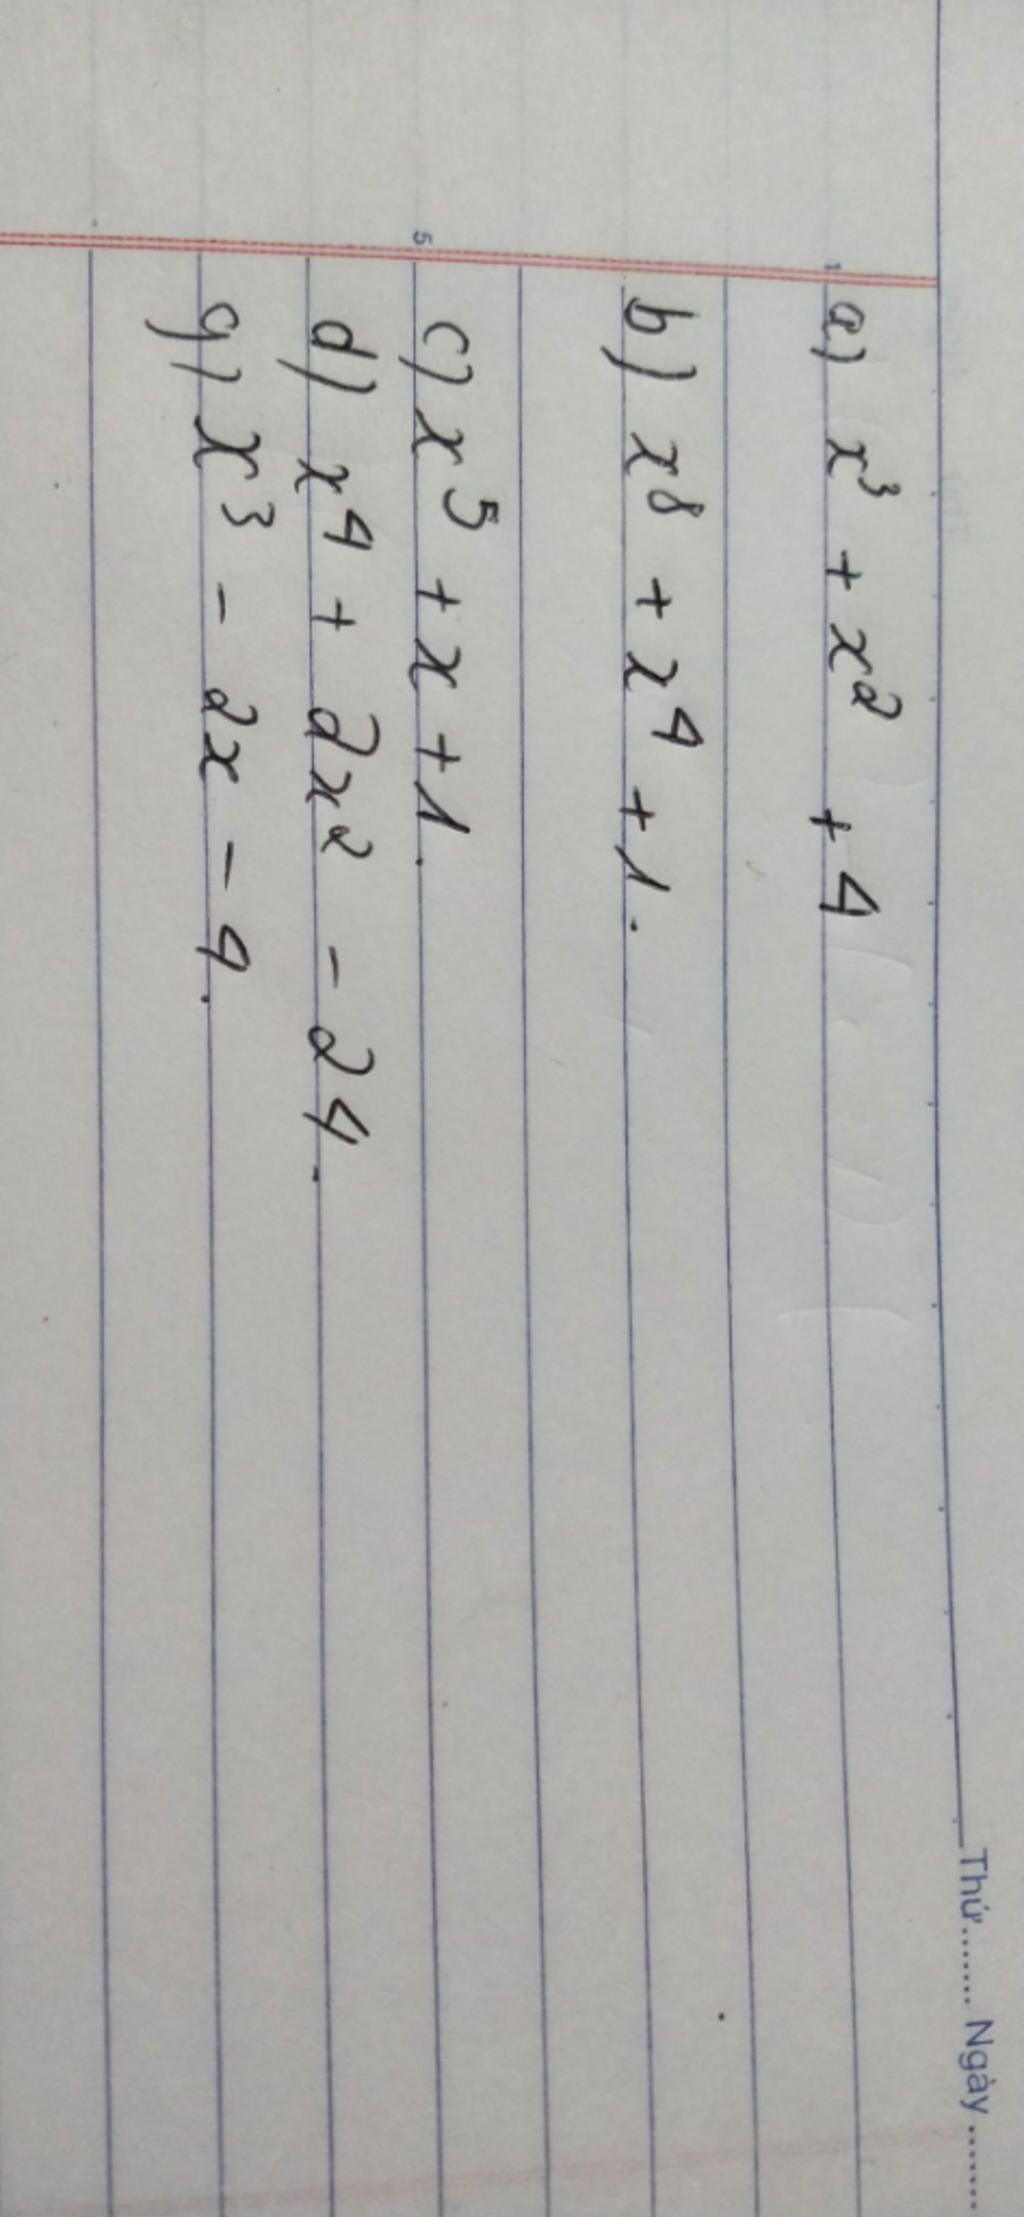 Thứ....... Ngày .......
1
a) x³ + x² + 4
b) x⁸ + x⁴ + 1.
5
c) x⁵ + x + 1.
d) x⁴ + 2x² - 24.
g) x³ - 2x - 4.